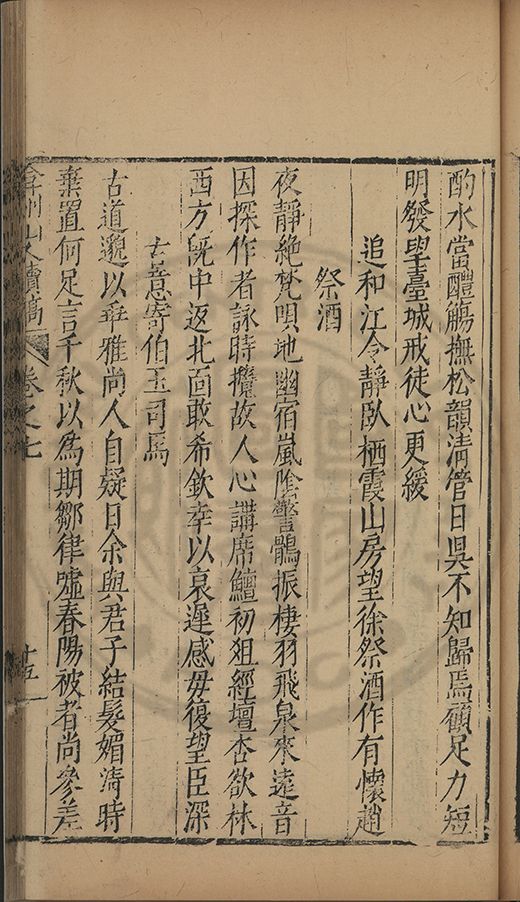 酌水當醴觴撫松韻淸管日昃不知歸焉顧足力短
明發望臺城戒徒心更緩
追和江令靜臥栖霞山房望徐祭酒作有懷趙
祭酒
夜靜絶梵唄地幽宿嵐陰驚鶻振棲羽飛泉來遠音
因探作者詠時攬故人心講席鱣初爼經壇杏欲林
西方旣中返北面敢希欽幸以哀遲感毋復望臣深
古意寄伯玉司馬
古道邈以乖雅尚人自疑日余與君子結髮媚淸時
棄置何足言千秋以爲期鄒律噓春陽被者尚參差
弇州山人續稿
卷之七
十五